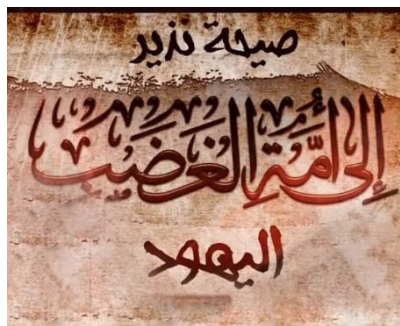 صيحة نذير
إلى أمَّةِ الغَضَبِ
اليهود